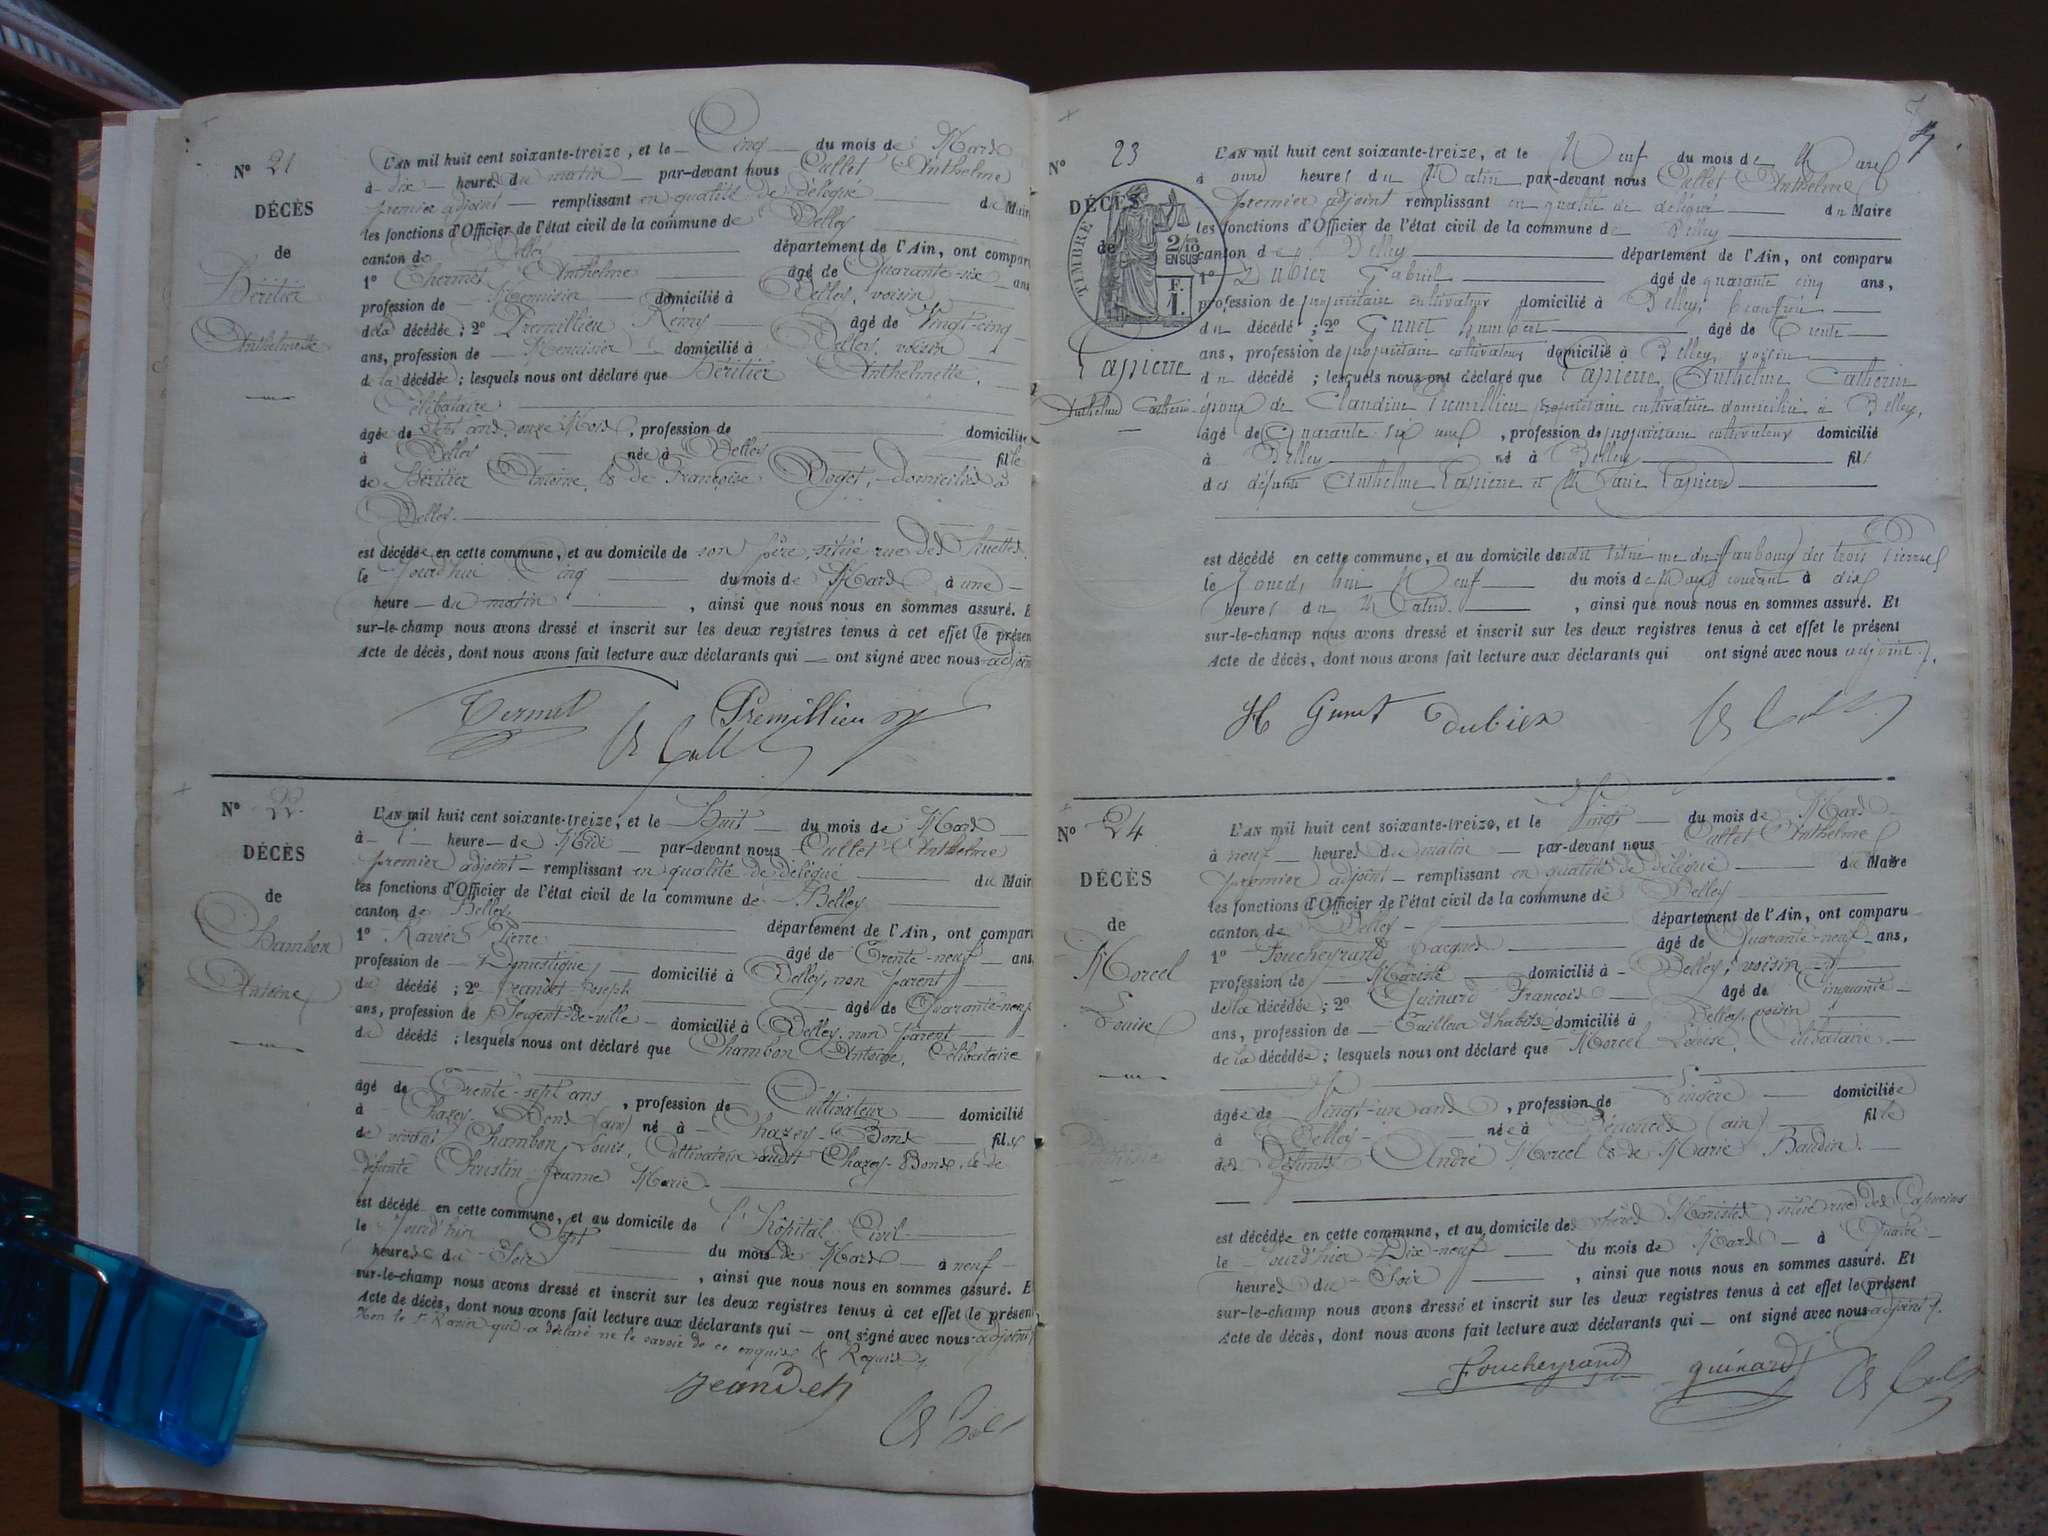 N° 21
DÉCÈS
de
Héritier
Anthelmette
L'AN mil huit cent soixante-treize, et le Cinq du mois de Mars
à six heures du matin par-devant nous Cullet Anthelme
premier adjoint remplissant en qualité de délégué du Maire
les fonctions d'Officier de l'état civil de la commune de Belley
canton de Belley département de l'Ain, ont comparu
1° Thermet Anthelme âgé de Quarante-six ans
profession de Menuisier domicilié à Belley, voisin
de la décédée; 2° Premillieu Rémy âgé de Vingt-cinq
ans, profession de Menuisier domicilié à Belley, voisin
de la décédée; lesquels nous ont déclaré que Héritier Anthelmette,
Célibataire
âgée de sept ans, onze Mois, profession de domiciliée
à Belley née à Belley fille
de Héritier Antoine, & de Françoise Boget, domiciliés à
Belley.
est décédée en cette commune, et au domicile de son père, situé rue des
le jourd'hui Cinq du mois de Mars à une
heure du matin, ainsi que nous nous en sommes assuré. E
sur-le-champ nous avons dressé et inscrit sur les deux registres tenus à cet effet le présen
Acte de décès, dont nous avons fait lecture aux déclarants qui ont signé avec nous adjoint
Termet Premillieu
A Cullet
N° 22
DÉCÈS
de
Chambon
Antoine
L'AN mil huit cent soixante-treize, et le Huit du mois de Mars
à heure de Midi par-devant nous Cullet Anthelme
premier adjoint remplissant en qualité de délégué du Mair
les fonctions d'Officier de l'état civil de la commune de Belley
canton de Belley département de l'Ain, ont compar
1° Ravier Pierre âgé de Trente-neuf ans
profession de Domestique domicilié à Belley, non parent
du décédé; 2° Jeandet Joseph âgé de Quarante-neuf
ans, profession de Sergent-de-ville domicilié à Belley, non parent
du décédé; lesquels nous ont déclaré que Chambon Antoine, Célibataire
âgé de Trente-sept ans, profession de Cultivateur domicilié
à Chazey-Bons (ain) né à Chazey-Bons fils
de vivant Chambon Louis, Cultivateur audit Chazey-Bons, & de
défunte Christin Jeanne Marie
est décédé en cette commune, et au domicile de l'hôpital Civil
le jourd'hier Sept du mois de Mars à neuf
heures du Soir, ainsi que nous nous en sommes assuré. E
sur-le-champ nous avons dressé et inscrit sur les deux registres tenus à cet effet le présen
Acte de décès, dont nous avons fait lecture aux déclarants qui ont signé avec nous adjoint
Non le Sr Ravier qui a déclaré ne le savoir de ce enquis & Requis
Jeandet
A Cullet
N° 23
DÉCÈS
de
TIMBRE
2/10 EN SUS
F. 1.
Lapierre
Anthelme Catherin
L'AN mil huit cent soixante-treize, et le Neuf du mois de Mars
à onze heures du Matin par-devant nous Cullet Anthelme
premier adjoint remplissant en qualité de délégué du Maire
les fonctions d'Officier de l'état civil de la commune de Belley
canton de Belley département de l'Ain, ont comparu
1° Dubiez Gabriel âgé de quarante cinq ans,
profession de propriétaire cultivateur domicilié à Belley, beau-frère
du décédé; 2° Gunet humbert âgé de Trente
ans, profession de propriétaire cultivateur domicilié à Belley, voisin
du décédé; lesquels nous ont déclaré que Lapierre, Anthelme Catherin
époux de Claudine Premillieu propriétaire cultivatrice domiciliée à Belley,
âgé de Quarante six ans, profession de propriétaire cultivateur domicilié
à Belley né à Belley fils
des défunts Anthelme Lapierre et Marie Lapierre
est décédé en cette commune, et au domicile de situé rue du Faubourg des trois Pierres
le jourd'hui Neuf du mois de Mars courant à dix
heures du Matin, ainsi que nous nous en sommes assuré. Et
sur-le-champ nous avons dressé et inscrit sur les deux registres tenus à cet effet le présent
Acte de décès, dont nous avons fait lecture aux déclarants qui ont signé avec nous adjoint.
H Gunet Dubiez A Cullet
N° 24
DÉCÈS
de
Morcel
Louise
L'AN mil huit cent soixante-treize, et le Vingt du mois de Mars
à neuf heures du matin par-devant nous Cullet Anthelme
premier adjoint remplissant en qualité de délégué du Maire
les fonctions d'Officier de l'état civil de la commune de Belley
canton de Belley département de l'Ain, ont comparu
1° Foucheyrand Jacques âgé de Quarante-neuf ans,
profession de Mariste domicilié à Belley, voisin
de la décédée; 2° Guinard François âgé de Cinquante
ans, profession de Tailleur d'habits domicilié à Belley, voisin
de la décédée; lesquels nous ont déclaré que Morcel Louise, Célibataire.
âgée de Vingt-un ans, profession de Lingère domiciliée
à Belley née à (ain) fille
des défunts André Morcel & de Marie Baudin.
est décédée en cette commune, et au domicile des Maristes, situé rue des Capucins
le jourd'hier Dix-neuf du mois de Mars à Quatre
heures du Soir, ainsi que nous nous en sommes assuré. Et
sur-le-champ nous avons dressé et inscrit sur les deux registres tenus à cet effet le présent
Acte de décès, dont nous avons fait lecture aux déclarants qui ont signé avec nous adjoint.
Foucheyrand guinard A Cullet